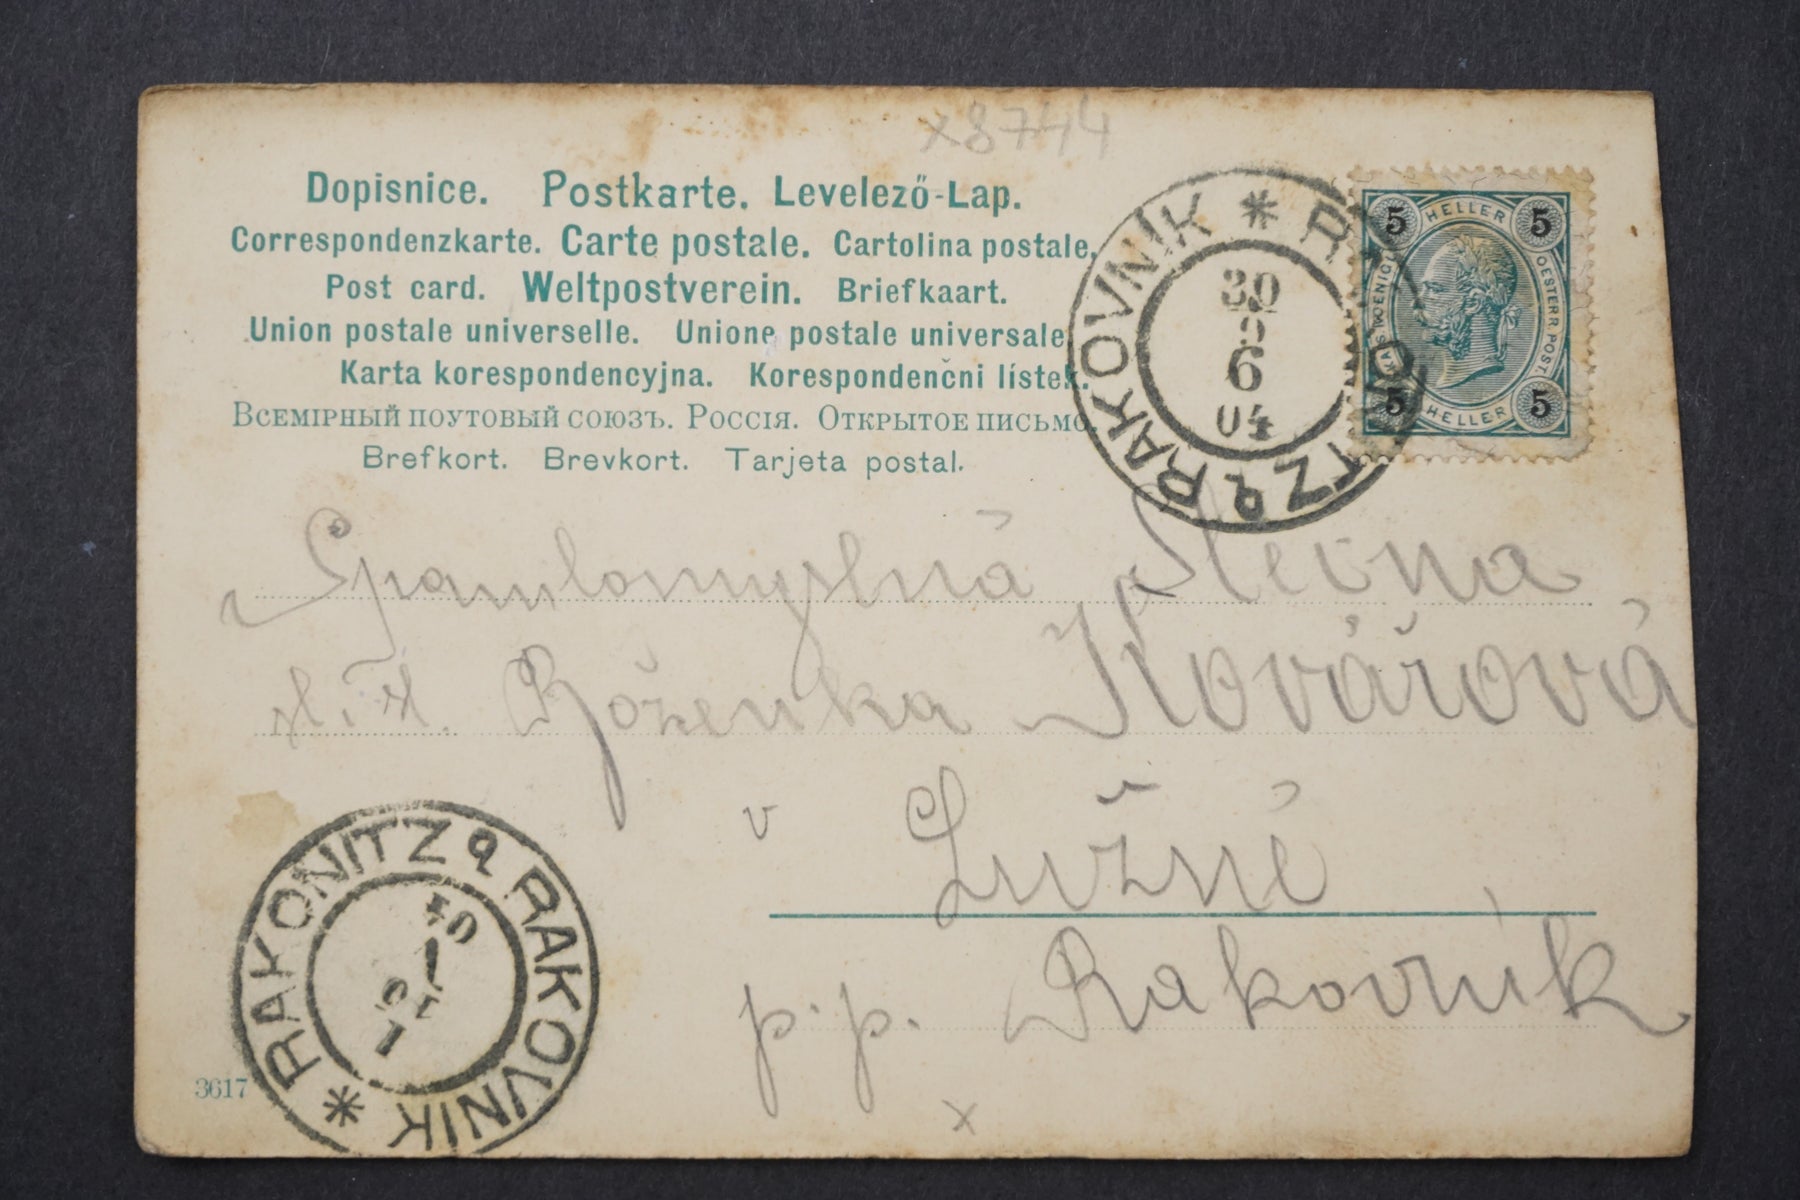 x8744
Dopisnice. Postkarte. Levelező-Lap.
Correspondenzkarte. Carte postale. Cartolina postale.
Post card. Weltpostverein. Briefkaart.
Union postale universelle. Unione postale universale.
Karta korespondencyjna. Korespondenčni lístek.
Всемірный поутовый союзъ. Россія. Открытое письмо.
Brefkort. Brevkort. Tarjeta postal.
RAKOVNIK * RAKONITZ
30
9
6
04
5 HELLER 5
KAIS. KOENIGL. OESTERR. POST.
5 HELLER 5
Spanilomyslná Slečna
Boženka Kovářová
v Lužné
p. p. Rakovník
x
RAKONITZ RAKOVNIK *
3617